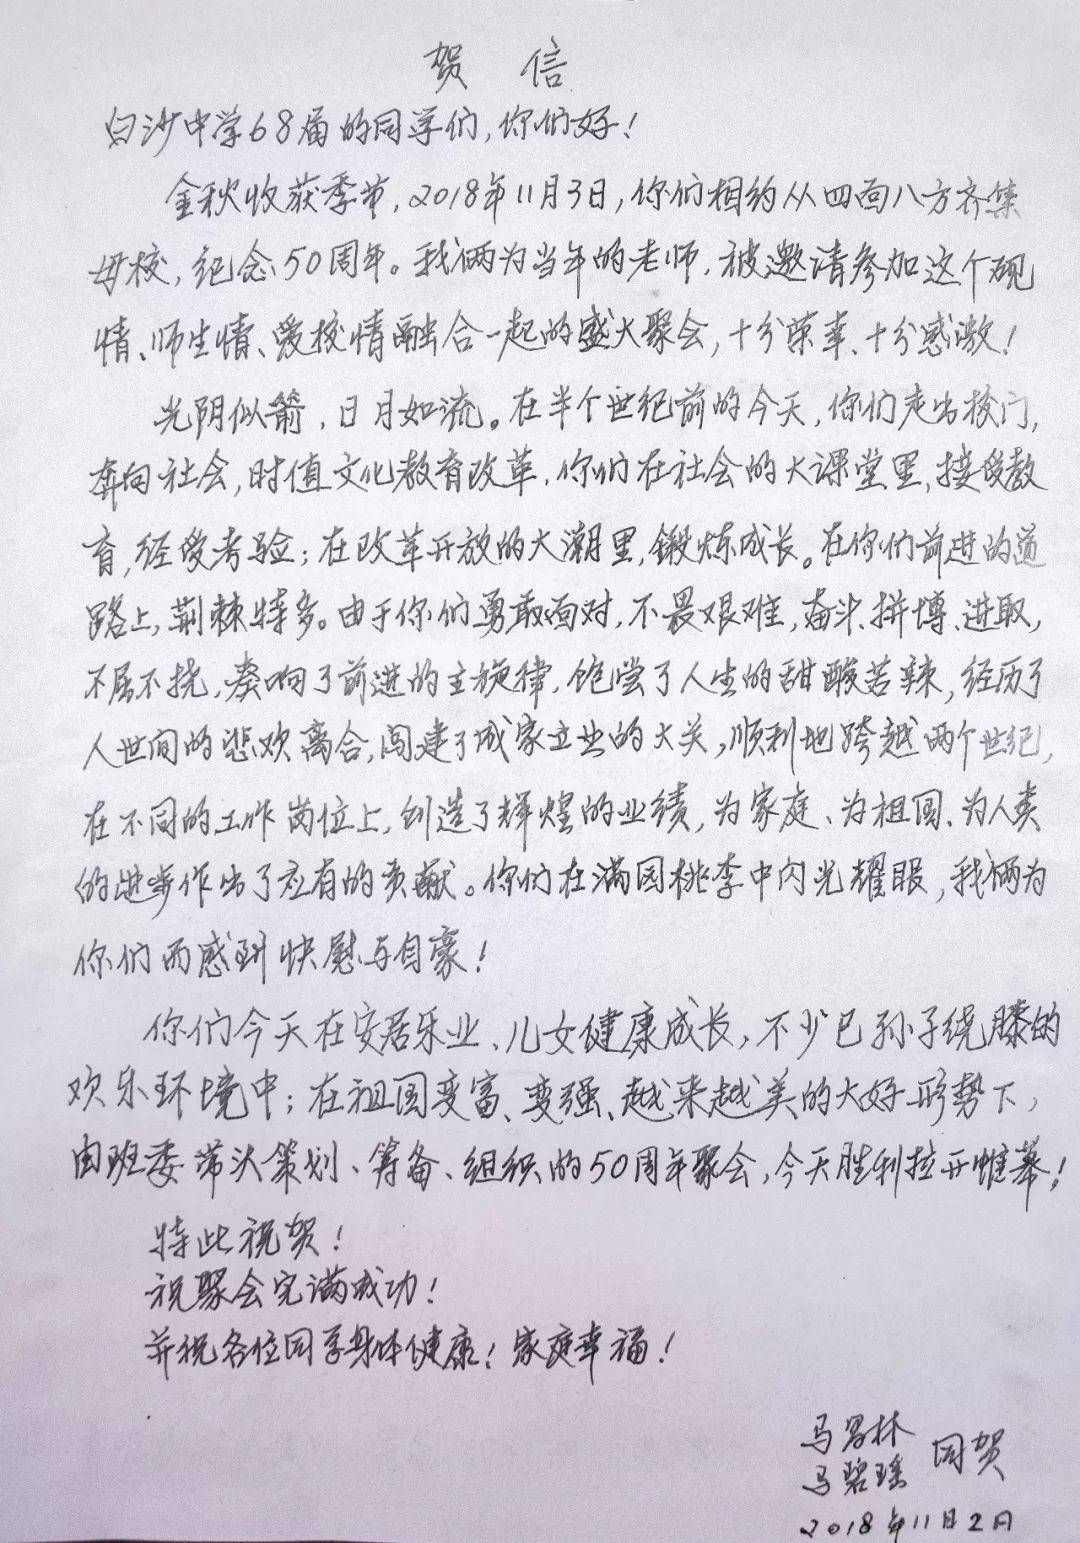 贺 信
白沙中学68届的同学们,你们好!
金秋收获季节,2018年11月3日,你们相约从四面八方齐集
母校,纪念50周年。我俩为当年的老师,被邀请参加这个砚
情、师生情、爱校情融合一起的盛大聚会,十分荣幸、十分感激!
光阴似箭,日月如流。在半个世纪前的今天,你们走出校门,
奔向社会,时值文化教育改革,你们在社会的大课堂里,接受教
育,经受考验;在改革开放的大潮里,锻炼成长。在你们前进的道
路上,荆棘特多。由于你们勇敢面对,不畏艰难,奋斗、拼博、进取,
不屈不挠,奏响了前进的主旋律,饱尝了人生的甜酸苦辣,经历了
人世间的悲欢离合,闯建了成家立业的大关,顺利地跨越两个世纪,
在不同的工作岗位上,创造了辉煌的业绩,为家庭、为祖国、为人类
的进步作出了应有的贡献。你们在满园桃李中闪光耀眼,我俩为
你们而感到快慰与自豪!
你们今天在安居乐业、儿女健康成长,不少已孙子绕膝的
欢乐环境中;在祖国变富、变强、越来越美的大好形势下,
由班委带头策划、筹备、组织的50周年聚会,今天胜利拉开帷幕!
特此祝贺!
祝聚会完满成功!
并祝各位同学身体健康!家庭幸福!
马 林 同贺
马碧瑶
2018年11月2日